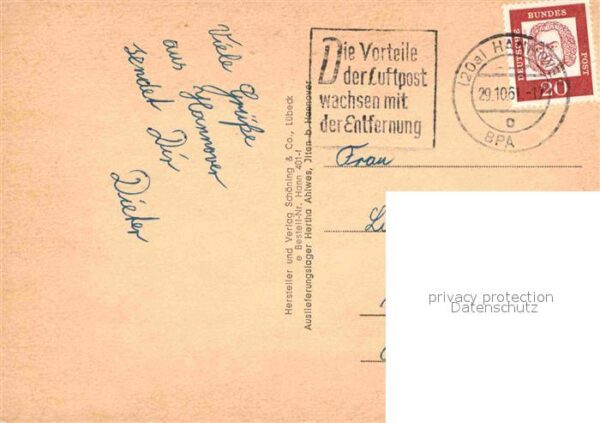 Viele Grüße
aus Hannover
sendet Dir
Dieter
Hersteller und Verlag Schöning & Co., Lübeck
e Bestell-Nr. Hann 401-f
Auslieferungslager Hertha Ahlwes, Ilten b. Hannover
Die Vorteile
der Luftpost
wachsen mit
der Entfernung
(20a)
29.10.61
c
BPA
DEUTSCHE
BUNDES
POST
20
Frau
privacy protection
Datenschutz